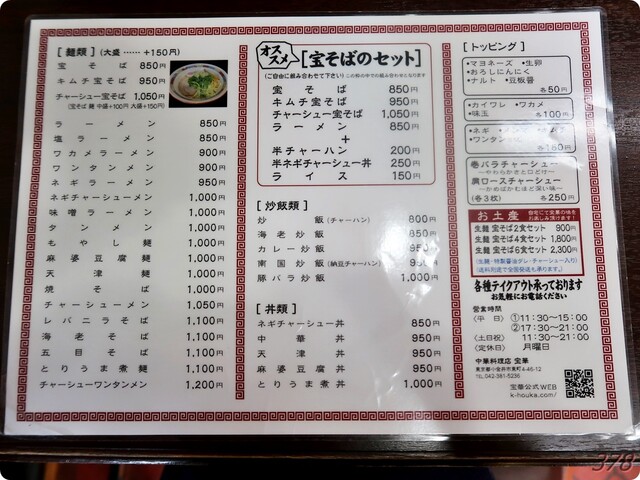 [ 麺類 ] (大盛 …… +150円)
宝そば 850円
キムチ宝そば 950円
チャーシュー宝そば 1,050円
(宝そば 麺 中盛+100円 大盛+150円)
ラーメン 850円
塩ラーメン 850円
ワカメラーメン 900円
ワンタンメン 900円
ネギラーメン 950円
ネギチャーシューメン 1,000円
味噌ラーメン 1,000円
タンメン 1,000円
もやし麺 1,000円
麻婆豆腐麺 1,000円
天津麺 1,000円
焼そば 1,000円
チャーシューメン 1,050円
レバニラそば 1,100円
海老そば 1,100円
五目そば 1,100円
とりうま煮麺 1,100円
チャーシューワンタンメン 1,200円
オススメ [宝そばのセット]
(ご自由に組み合わせて下さい)この枠の中での組み合わせとなります
宝そば 850円
キムチ宝そば 950円
チャーシュー宝そば 1,050円
ラーメン 850円
+
半チャーハン 200円
半ネギチャーシュー丼 250円
ライス 150円
[ 炒飯類 ]
炒飯(チャーハン) 800円
海老炒飯 850円
カレー炒飯 950円
南国炒飯(納豆チャーハン) 950円
豚バラ炒飯 1,000円
[ 丼類 ]
ネギチャーシュー丼 850円
中華丼 950円
天津丼 950円
麻婆豆腐丼 950円
とりうま煮丼 1,000円
[ トッピング ]
•マヨネーズ •生卵
•おろしにんにく
•ナルト •豆板醤
各50円
•カイワレ •ワカメ
•味玉 各100円
•ネギ
•ワンタン
各150円
巻バラチャーシュー
~やわらかさと口どけ~
肩ロースチャーシュー
~かめばかむほど深い味~
(各3枚) 各250円
お土産
生麺 宝そば2食セット 900円
生麺 宝そば4食セット 1,800円
生麺 宝そば6食セット 2,300円
(生麺・特製醤油ダレ・チャーシュー入り)
「送料別途で全国発送も承ります。」
各種テイクアウト承っております
お気軽にお電話ください
営業時間
(平日) ①11:30~15:00
②17:30~21:00
(土日祝) 11:30~21:00
(定休日) 月曜日
中華料理店 宝華
東京都小金井市東町4-46-12
TEL.042-381-5235
宝華公式WEB
k-houka.com/
378